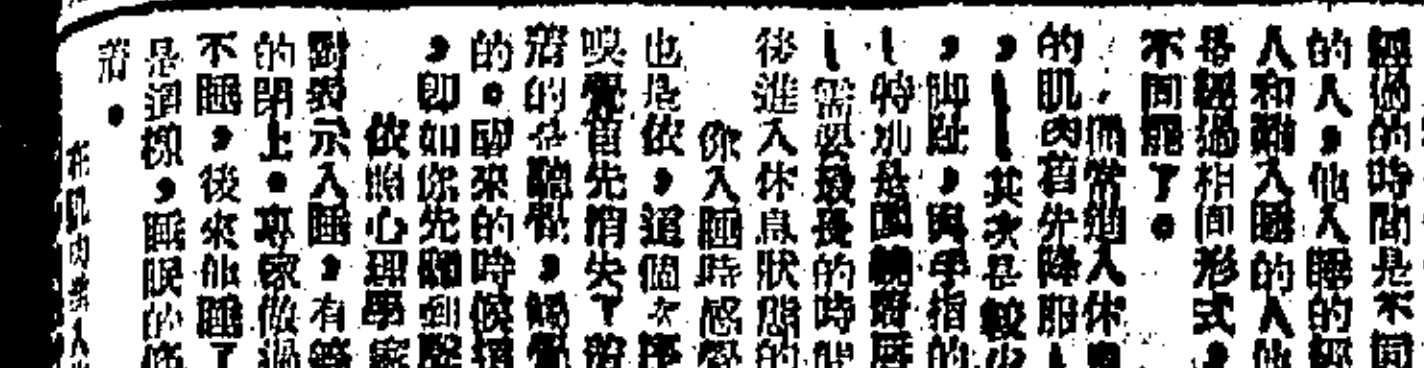 經過的時間是不同
的人，他入睡的經
人和難入睡的人他
是經過相同形式，
不同罷了。
當進入休
的肌肉首先降服
，——其次是較小
，脚趾，與手指的
特別是圍繞着唇
需要最長的時間
後進入休息狀態的
你入睡時感覺
也是依，這個次序
嗅覺首先消失了
着的是聽覺，觸覺
的。醒來的時候
，卽如你先聽到聲
依照心理學家
對表示入睡，有
的閉上。專家做過
不睡，後來他睡了
是這樣，睡眠的
着。
在肌肉進入